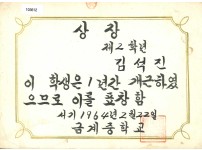 상장
제2학년
김석진
이 학생은 1년간 개근하였
으므로 이를 표창함
서기 1964년 2월 22일
금계중학교